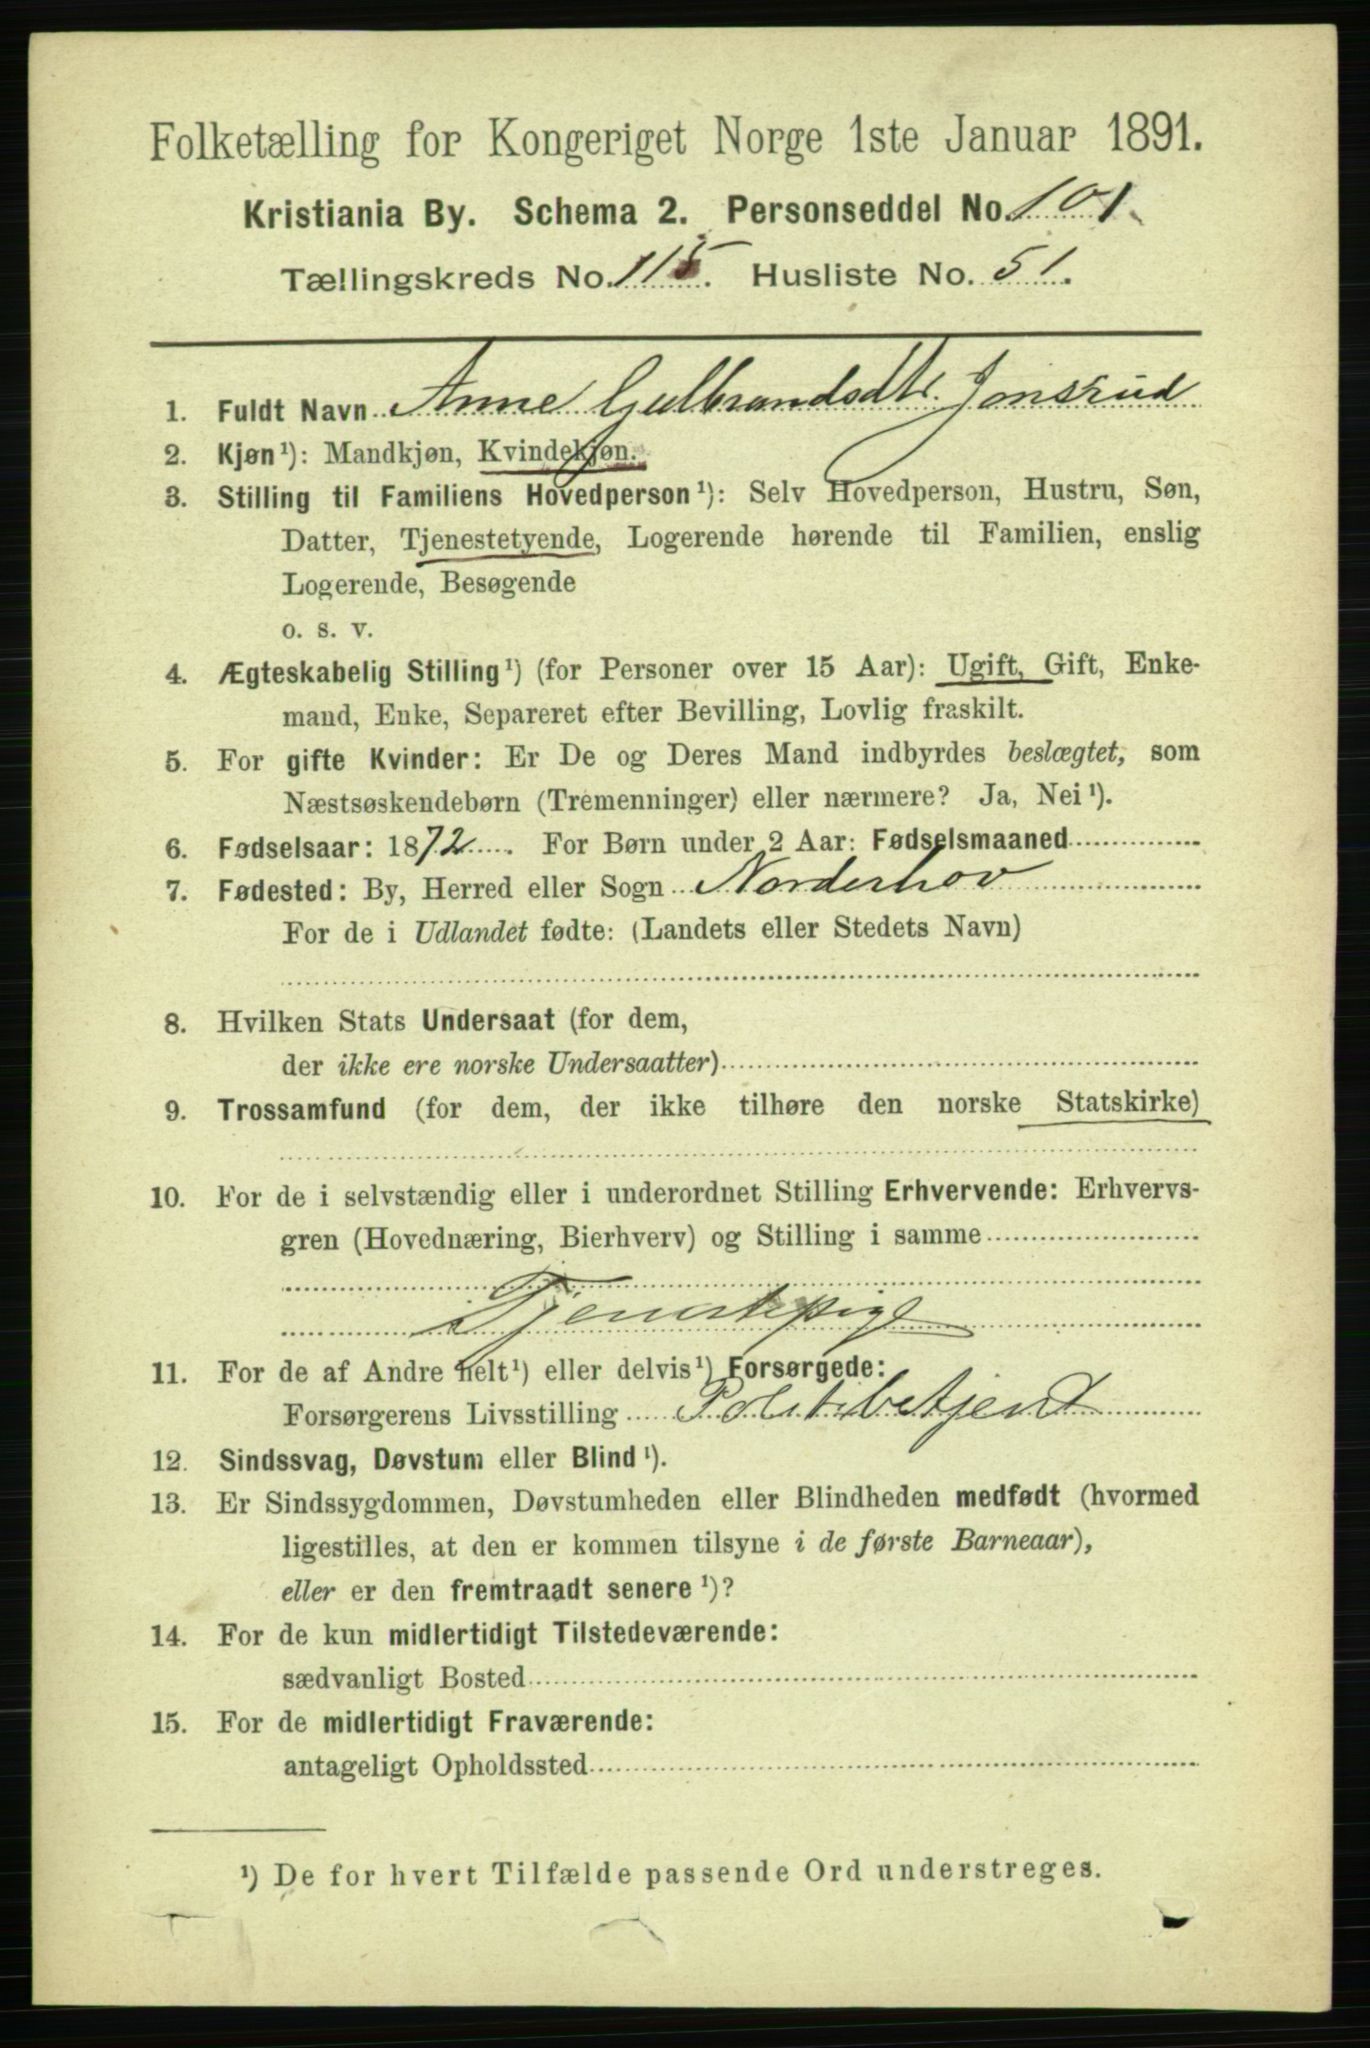 Folketælling for Kongeriget Norge 1ste Januar 1891.
Kristiania By. Schema 2. Personseddel No. 101.
Tællingskreds No. 115. Husliste No. 51.
1. Fuldt Navn Anne Gulbrandsdtr. Jonsrud
2. Kjøn¹): Mandkjøn, Kvindekjøn.
3. Stilling til Familiens Hovedperson¹): Selv Hovedperson, Hustru, Søn,
Datter, Tjenestetyende, Logerende hørende til Familien, enslig
Logerende, Besøgende
o. s. v.
4. Ægteskabelig Stilling¹) (for Personer over 15 Aar): Ugift, Gift, Enke-
mand, Enke, Separeret efter Bevilling, Lovlig fraskilt.
5. For gifte Kvinder: Er De og Deres Mand indbyrdes beslægtet, som
Næstsøskendebørn (Tremenninger) eller nærmere? Ja, Nei¹).
6. Fødselsaar: 1872. For Børn under 2 Aar: Fødselsmaaned
7. Fødested: By, Herred eller Sogn Norderhov
For de i Udlandet fødte: (Landets eller Stedets Navn)
8. Hvilken Stats Undersaat (for dem,
der ikke ere norske Undersaatter)
9. Trossamfund (for dem, der ikke tilhøre den norske Statskirke)
10. For de i selvstændig eller i underordnet Stilling Erhvervende: Erhvervs-
gren (Hovednæring, Bierhverv) og Stilling i samme
Tjenestepige
11. For de af Andre helt¹) eller delvis¹) Forsørgede:
Forsørgerens Livsstilling Politibetjent
12. Sindssvag, Døvstum eller Blind¹).
13. Er Sindssygdommen, Døvstumheden eller Blindheden medfødt (hvormed
ligestilles, at den er kommen tilsyne i de første Barneaar),
eller er den fremtraadt senere¹)?
14. For de kun midlertidigt Tilstedeværende:
sædvanligt Bosted
15. For de midlertidigt Fraværende:
antageligt Opholdssted
¹) De for hvert Tilfælde passende Ord understreges.